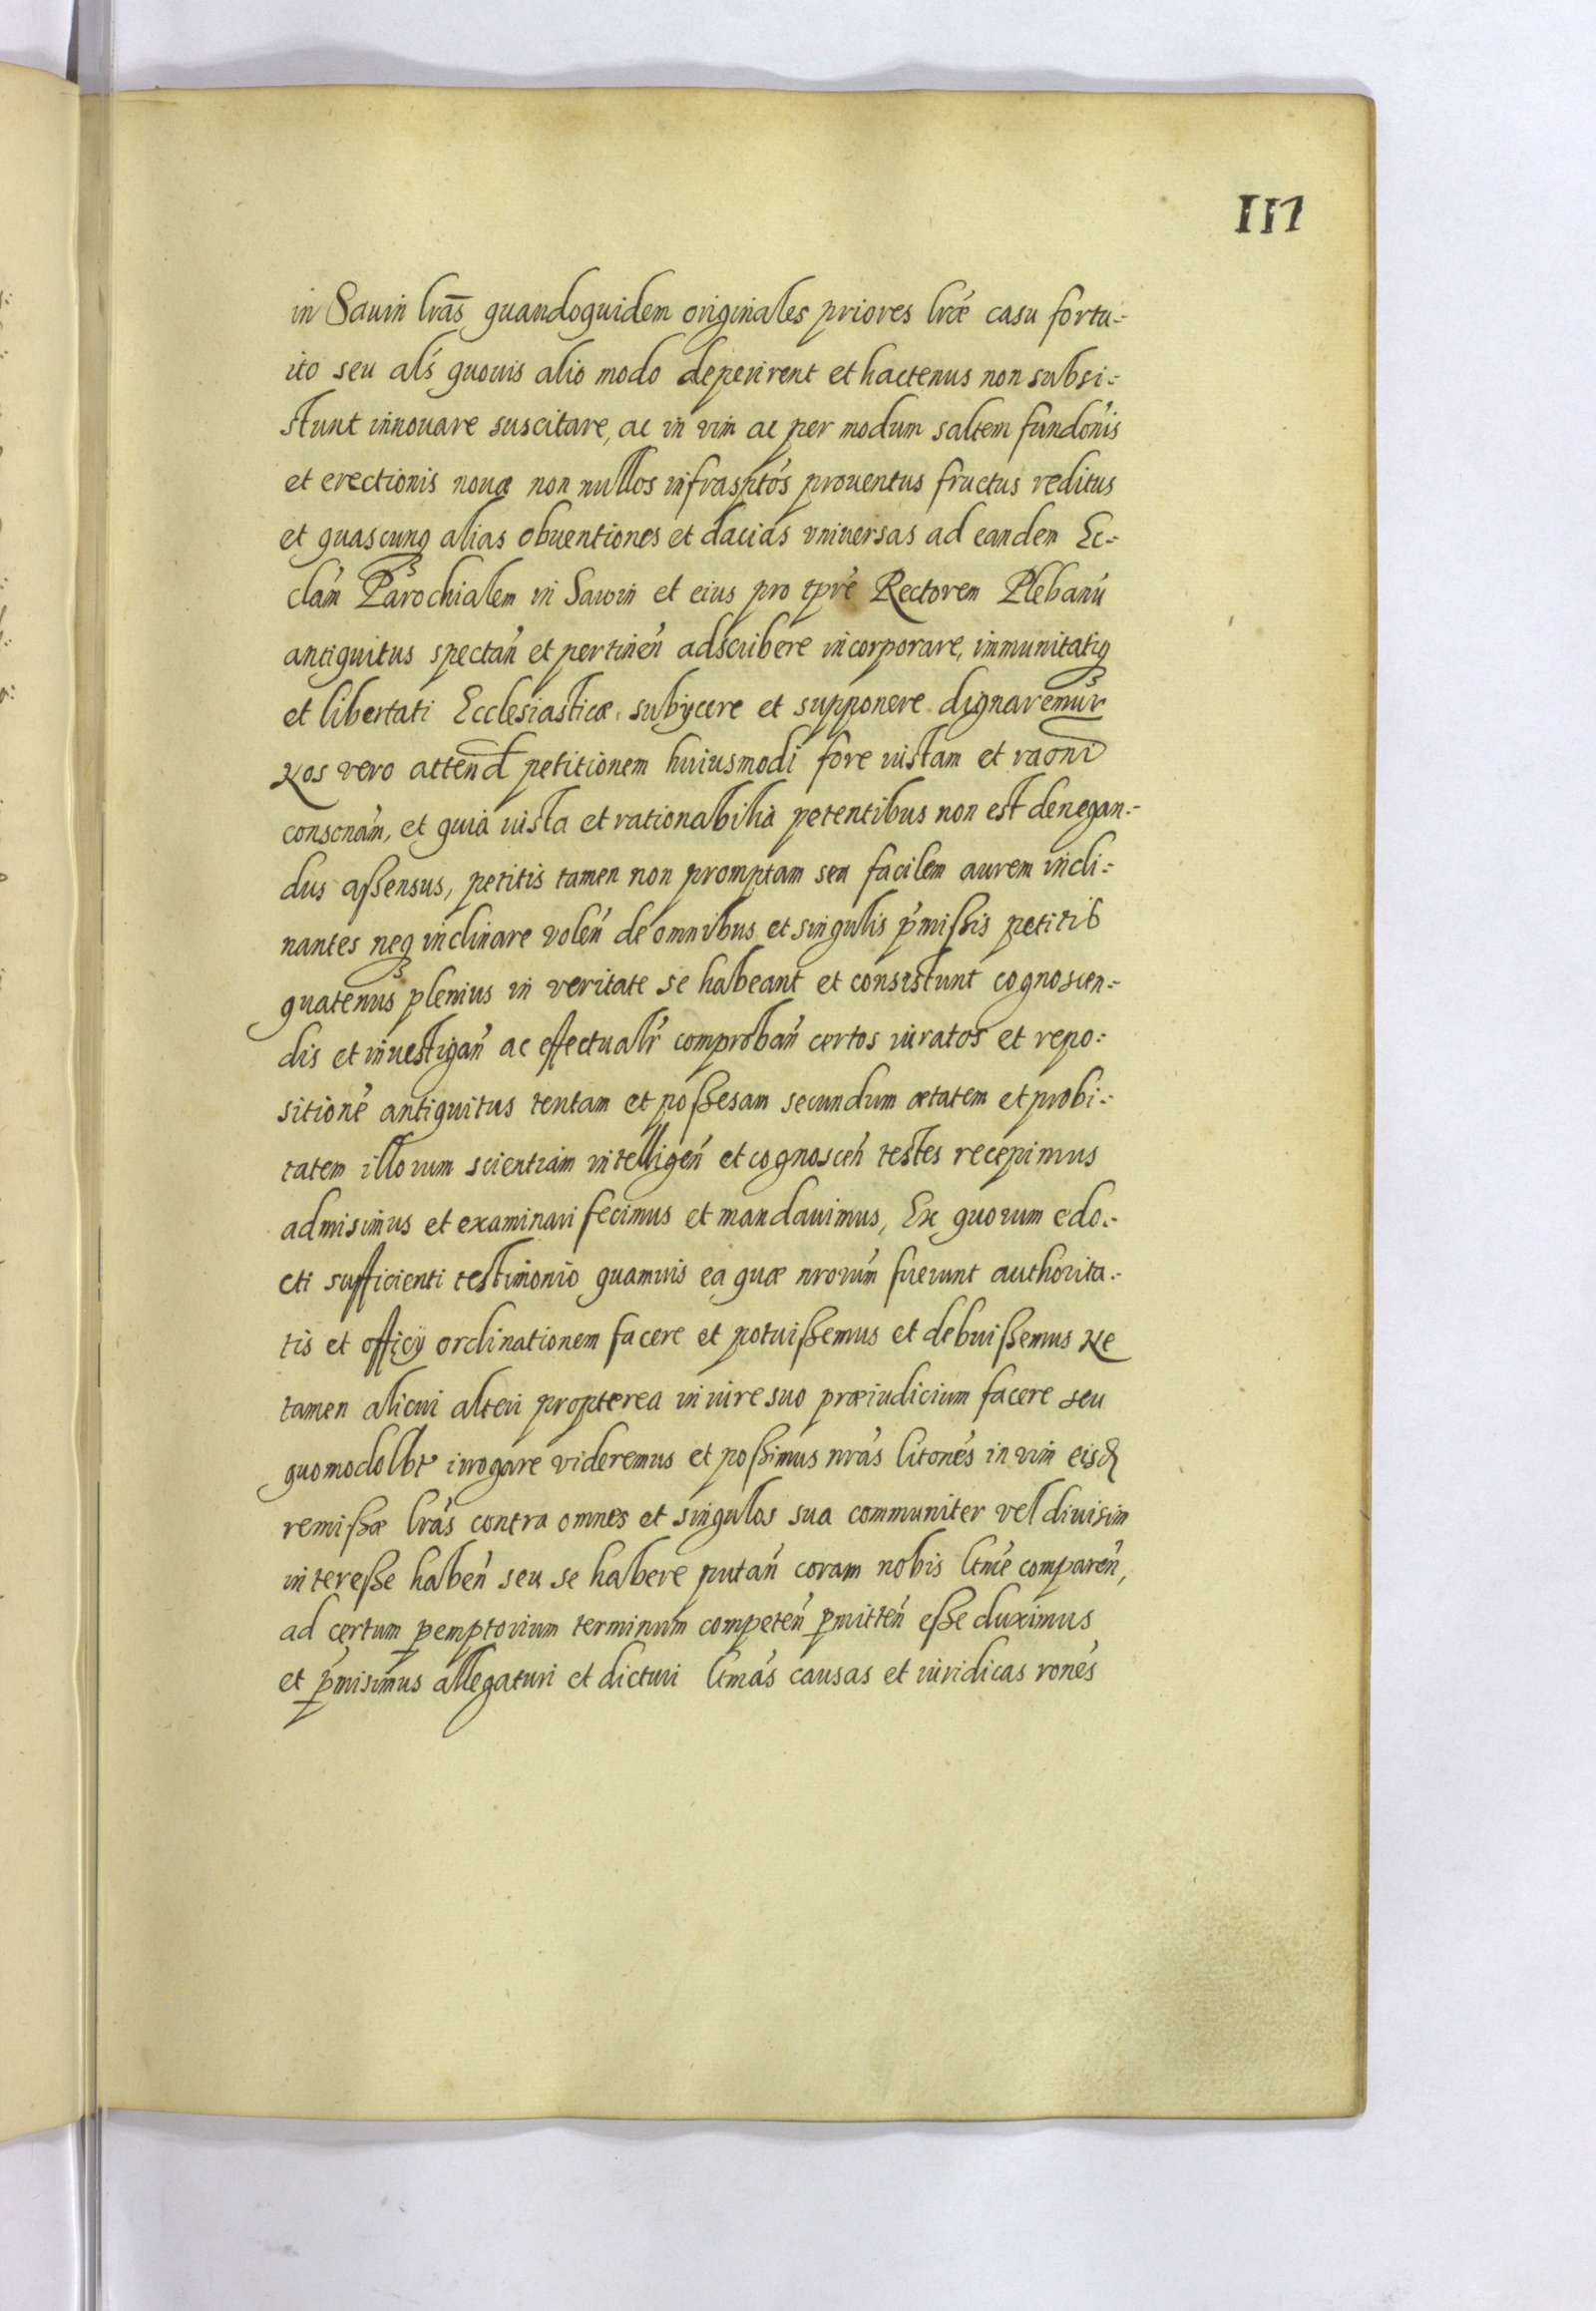 117
in Sauin lrās quandoquidem originales priores lræ casu fortu-
ito seu als quouis alio modo deperirent et hactenus non subsi-
stunt innouare suscitare, ac in vim ac per modum saltem fundonis
et erectionis nouæ non nullos infrasptos prouentus fructus reditus
et quascunq alias obuentiones et dacias vniuersas ad eandem Ec-
clam Parochialem in Sawin et eius pro tpre Rectorem Plebanu
antiquitus spectan et pertinen adscribere incorporare, immunitatiq
et libertati Ecclesiasticæ subijcere et supponere dignaremur
Nos vero attend petitionem huiusmodi fore iustam et raoni
consonam, et quia iusta et rationabilia petentibus non est denegan-
dus aßensus, petitis tamen non promptam seu facilem aurem incli-
nantes neq inclinare volen de omnibus et singulis pmißis petitis
quatenus plenius in veritate se habeant et consistunt cognoscen-
dis et inuestigan ac effectualr comproban certos iuratos et repo-
sitione antiquitus tentam et poßesam secundum ætatem et probi-
tatem illorum scientiam intelligen et cognoscen testes recepimus
admisimus et examinari fecimus et mandauimus, Ex quorum edo-
cti sufficienti testimonio quamuis ea quæ nrorum fuerunt authorita-
tis et officij ordinationem facere et potuißemus et debuißemus Ne
tamen alicui alteri propterea in iure suo præiudicium facere seu
quomodolbt irrogare videremus et poßimus nras litones in vim eisd
remißæ lras contra omnes et singulos sua communiter vel diuisim
intereße haben seu se habere putan coram nobis ltme comparen,
ad certum pemptorium terminum competen pmitten eße duximus
et pmisimus allegaturi et dicturi ltmas causas et iuridicas rones